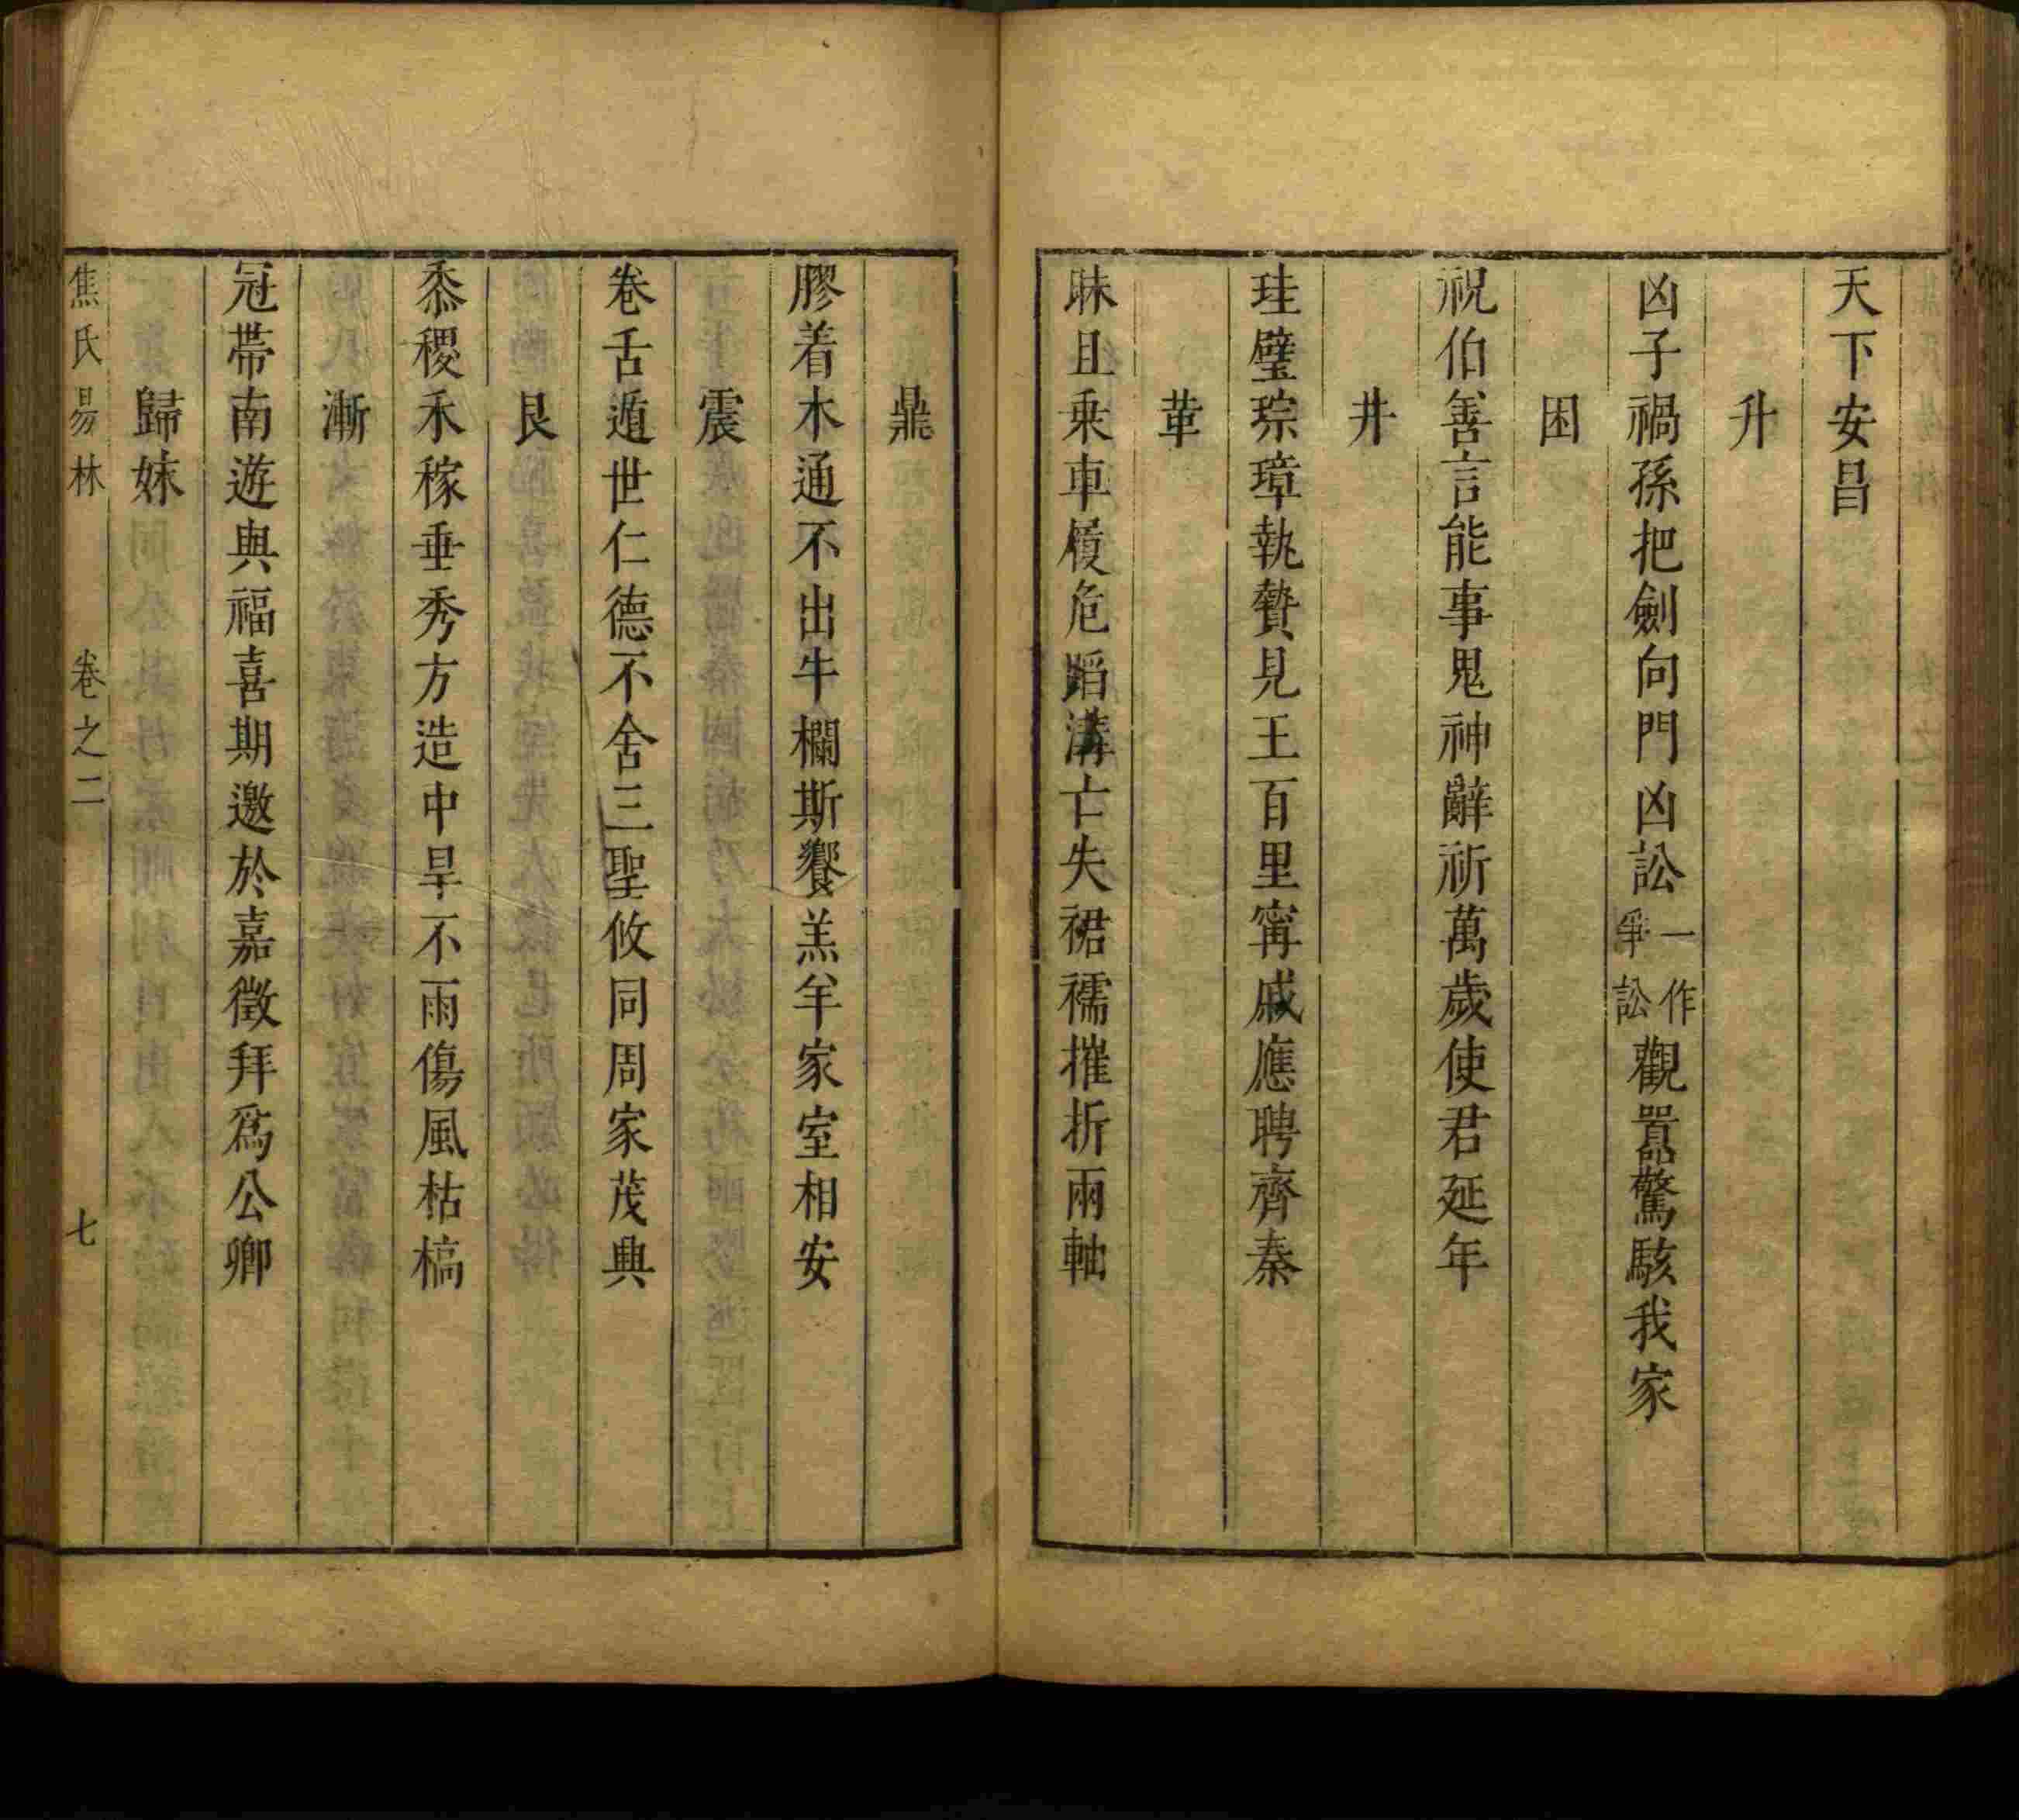 天下安昌
升
凶子禍孫把劍向門凶訟一作爭訟觀嚚驚駭我家
困
祝伯善言能事鬼神辭祈萬歲使君延年
井
珪璧琮璋執贄見王百里甯戚應聘齊秦
革
昧且乗車履危蹈溝亡失裙襦摧折兩軸
鼎
膠着木通不出牛欄斯饗羔羊家室相安
震
卷舌遁世仁德不舍三聖攸同周家茂興
艮
黍稷禾稼垂秀方造中旱不雨傷風枯槁
漸
冠帶南遊與福喜期邀於嘉徵拜爲公卿
歸妹
焦氏易林 卷之二 七